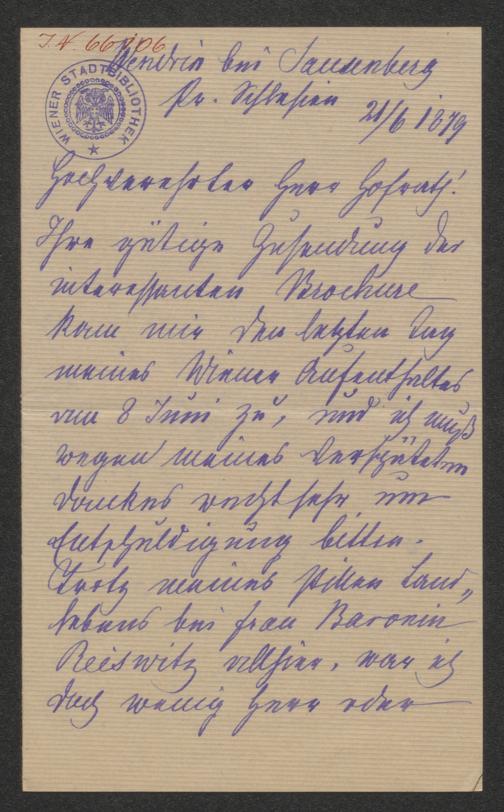 J.N. 66906
WIENER STADTBIBLIOTHEK
Wendrin bei
Pr. Schlesien 21/6 1879
Hochverehrter Herr Hofrath!
Ihre gütige Zusendung der
interessanten Brochure
kam mir den letzten Tag
meines Wiener Aufenthaltes
am 8 Juni zu, und ich muß
wegen meines verspäteten
Dankes recht sehr um
Entschuldigung bitten.
Trotz meines stillen Land„
lebens bei Frau Baronin
Reiswitz allhier, war ich
doch wenig Herr oder